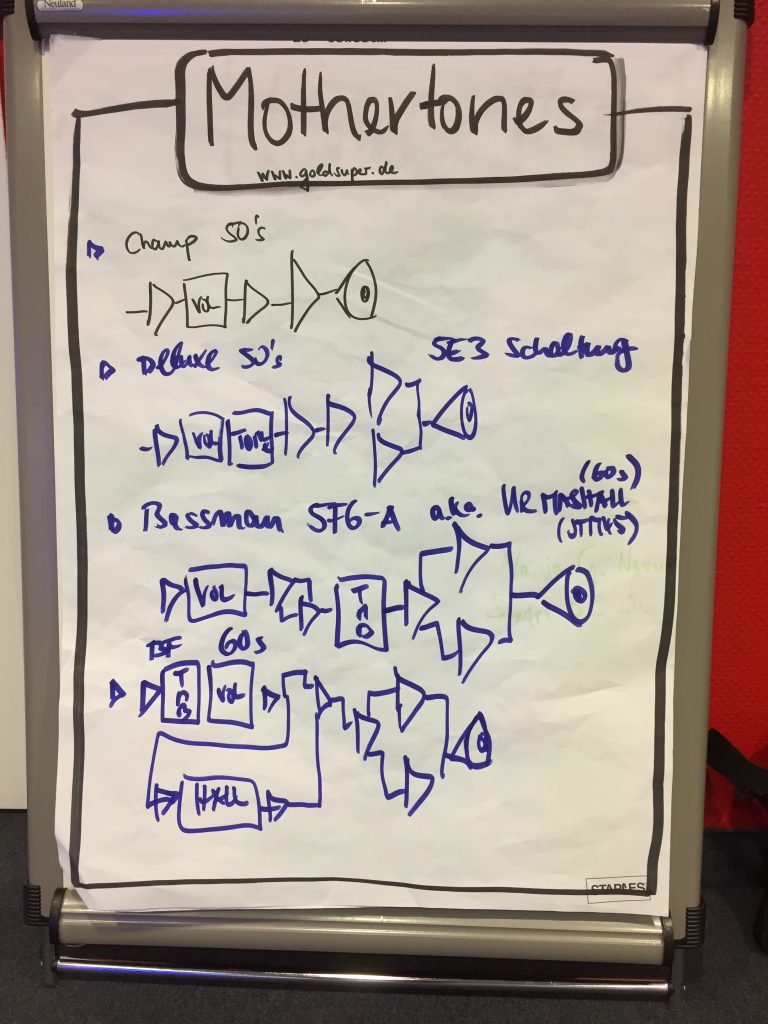 Neuland
Mothertones
www.goldsuper.de
Champ 50's
VOL
Deluxe 50's 5E3 Schaltung
VOL TONE
(60s)
Bassman 5F6-A a.k.a. UR MARSHALL
(JTM45)
VOL TMB
BF 60s
TMB VOL
HALL
STAPLES